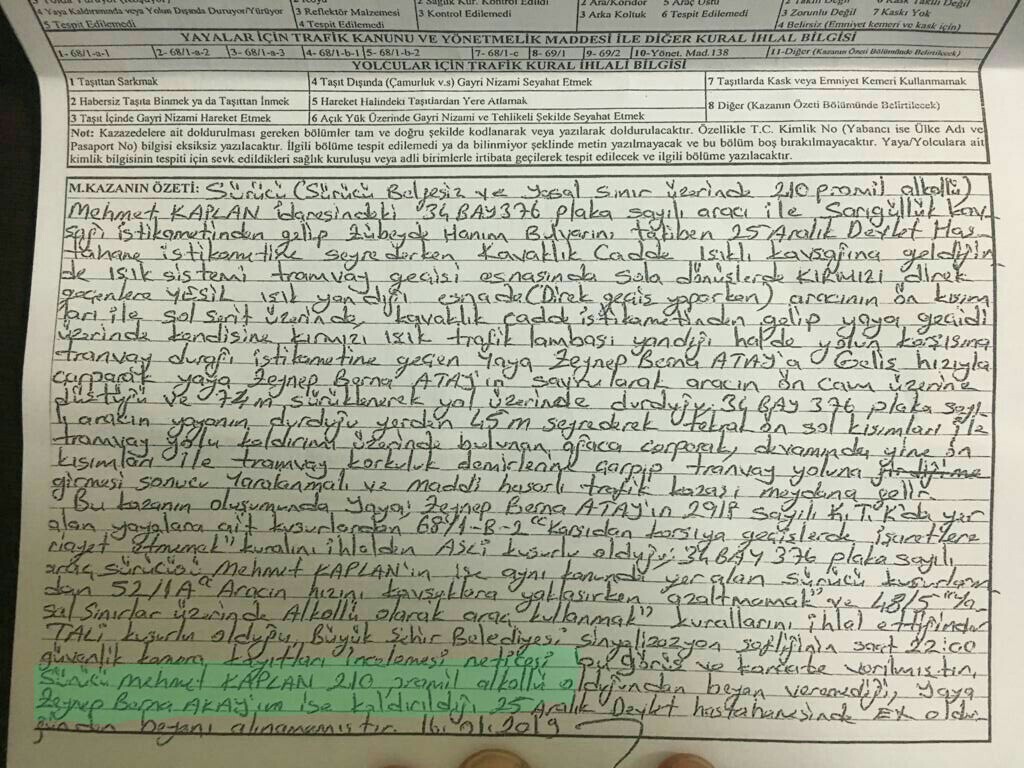 5 Tespit Edilemedi
4 Tespit Edilemedi
3 Reflektör Malzemesi
3 Kontrol Edilemedi
3 Arka Koltuk
6 Tespit Edilemedi
3 Zorunlu Değil
7 Kaskı Yok
4 Belirsiz (Emniyet kemeri ve kask için)
YAYALAR İÇİN TRAFİK KANUNU VE YÖNETMELİK MADDESİ İLE DİĞER KURAL İHLAL BİLGİSİ
1- 68/1-a-1 2- 68/1-a-2 3- 68/1-a-3 4- 68/1-b-1 5- 68/1-b-2 7- 68/1-c 8- 69/1 9- 69/2 10-Yönet. Mad.138 11-Diğer (Kazanın Özeti Bölümünde Belirtilecek)
YOLCULAR İÇİN TRAFİK KURAL İHLALİ BİLGİSİ
1 Taşıttan Sarkmak 4 Taşıt Dışında (Çamurluk v.s) Gayri Nizami Seyahat Etmek 7 Taşıtlarda Kask veya Emniyet Kemeri Kullanmamak
2 Habersiz Taşıta Binmek ya da Taşıttan İnmek 5 Hareket Halindeki Taşıtlardan Yere Atlamak 8 Diğer (Kazanın Özeti Bölümünde Belirtilecek)
3 Taşıt İçinde Gayri Nizami Hareket Etmek 6 Açık Yük Üzerinde Gayri Nizami ve Tehlikeli Şekilde Seyahat Etmek
Not: Kazazedelere ait doldurulması gereken bölümler tam ve doğru şekilde kodlanarak veya yazılarak doldurulacaktır. Özellikle T.C. Kimlik No (Yabancı ise Ülke Adı ve
Pasaport No) bilgisi eksiksiz yazılacaktır. İlgili bölüme tespit edilemedi ya da bilinmiyor şeklinde metin yazılmayacak ve bu bölüm boş bırakılmayacaktır. Yaya/Yolculara ait
kimlik bilgisinin tespiti için sevk edildikleri sağlık kuruluşu veya adli birimlerle irtibata geçilerek tespit edilecek ve ilgili bölüme yazılacaktır.
M.KAZANIN ÖZETİ: Sürücü (Sürücü Belgesiz ve yasal sınır üzerinde 210 promil alkollü)
Mehmet KAPLAN idaresindeki 34 BAY 376 plaka sayılı aracı ile Sarıgüllük kav-
şağı istikametinden gelip Zübeyde Hanım Bulvarını takiben 25 Aralık Devlet Has-
tahane istikametine seyrederken Kavaklık Cadde Işıklı kavşağına geldiğin
de ışık sistemi tramvay geçişi esnasında Sola dönüşlerde KIRMIZI direk
geçenlere YEŞİL ışık yandığı esnada (Direk geçiş yaparken) aracının ön kısım
ları ile sol şerit üzerinde, kavaklık cadde istikametinden gelip yaya geçidi
üzerinde kendisine kırmızı ışık trafik lambası yandığı halde yolun karşısına
tramvay durağı istikametine geçen Yaya Zeynep Berna ATAY'a Geliş hızıyla
çarparak yaya Zeynep Berna ATAY'ın savrularak aracın ön cam üzerine
düştüğü ve 74 m sürüklenerek yol üzerinde durduğu; 34 BAY 376 plaka sayı-
lı aracın yayanın durduğu yerden 45 m seyrederek tekrar ön sol kısımları ile
tramvay yolu kaldırımı üzerinde bulunan ağaca çarparak, devamında yine ön
kısımları ile tramvay korkuluk demirlerine çarpıp tramvay yoluna
girmesi sonucu Yaralanmalı ve maddi hasarlı trafik kazası meydana gelir.
Bu kazanın oluşumunda Yaya; Zeynep Berna ATAY'ın 2918 sayılı K.T.K'da yer
alan yayalara ait kusurlardan 68/1-B-2 "Karşıdan karşıya geçişlerde, işaretlere
riayet etmemek" kuralını ihlalden ASLİ kusurlu olduğu; 34 BAY 376 plaka sayılı
araç sürücüsü Mehmet KAPLAN'ın ise aynı kanunda yer alan sürücü kusurların
dan 52/1A "Aracın hızını kavşaklara yaklaşırken azaltmamak" ve 48/5 "Ya-
sal Sınırlar üzerinde Alkollü olarak araç kullanmak" kurallarını ihlal ettiğinden
TALİ kusurlu olduğu, Büyük Şehir Belediyesi sinyalizasyon şefliğinin saat 22:00
güvenlik kamera kayıtları incelemesi neticesi bu görüş ve kanaate varılmıştır.
Sürücü Mehmet KAPLAN 210 promil alkollü olduğundan beyan veremediği, Yaya
Zeynep Berna AKAY'ın ise kaldırıldığı 25 Aralık Devlet hastahanesinde EX oldu-
ğundan beyanı alınamamıştır. 16.01.2019